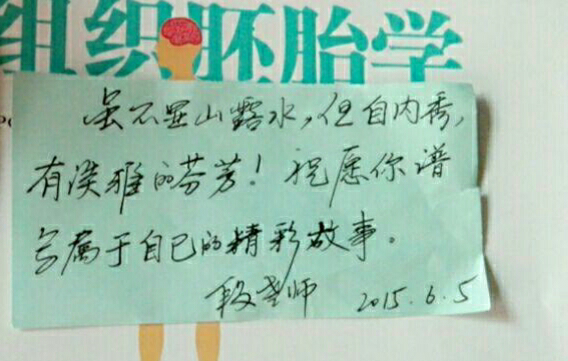 组织胚胎学
虽不显山露水，但自内秀，
有淡雅的芬芳！祝愿你谱
写属于自己的精彩故事。
段老师 2015.6.5